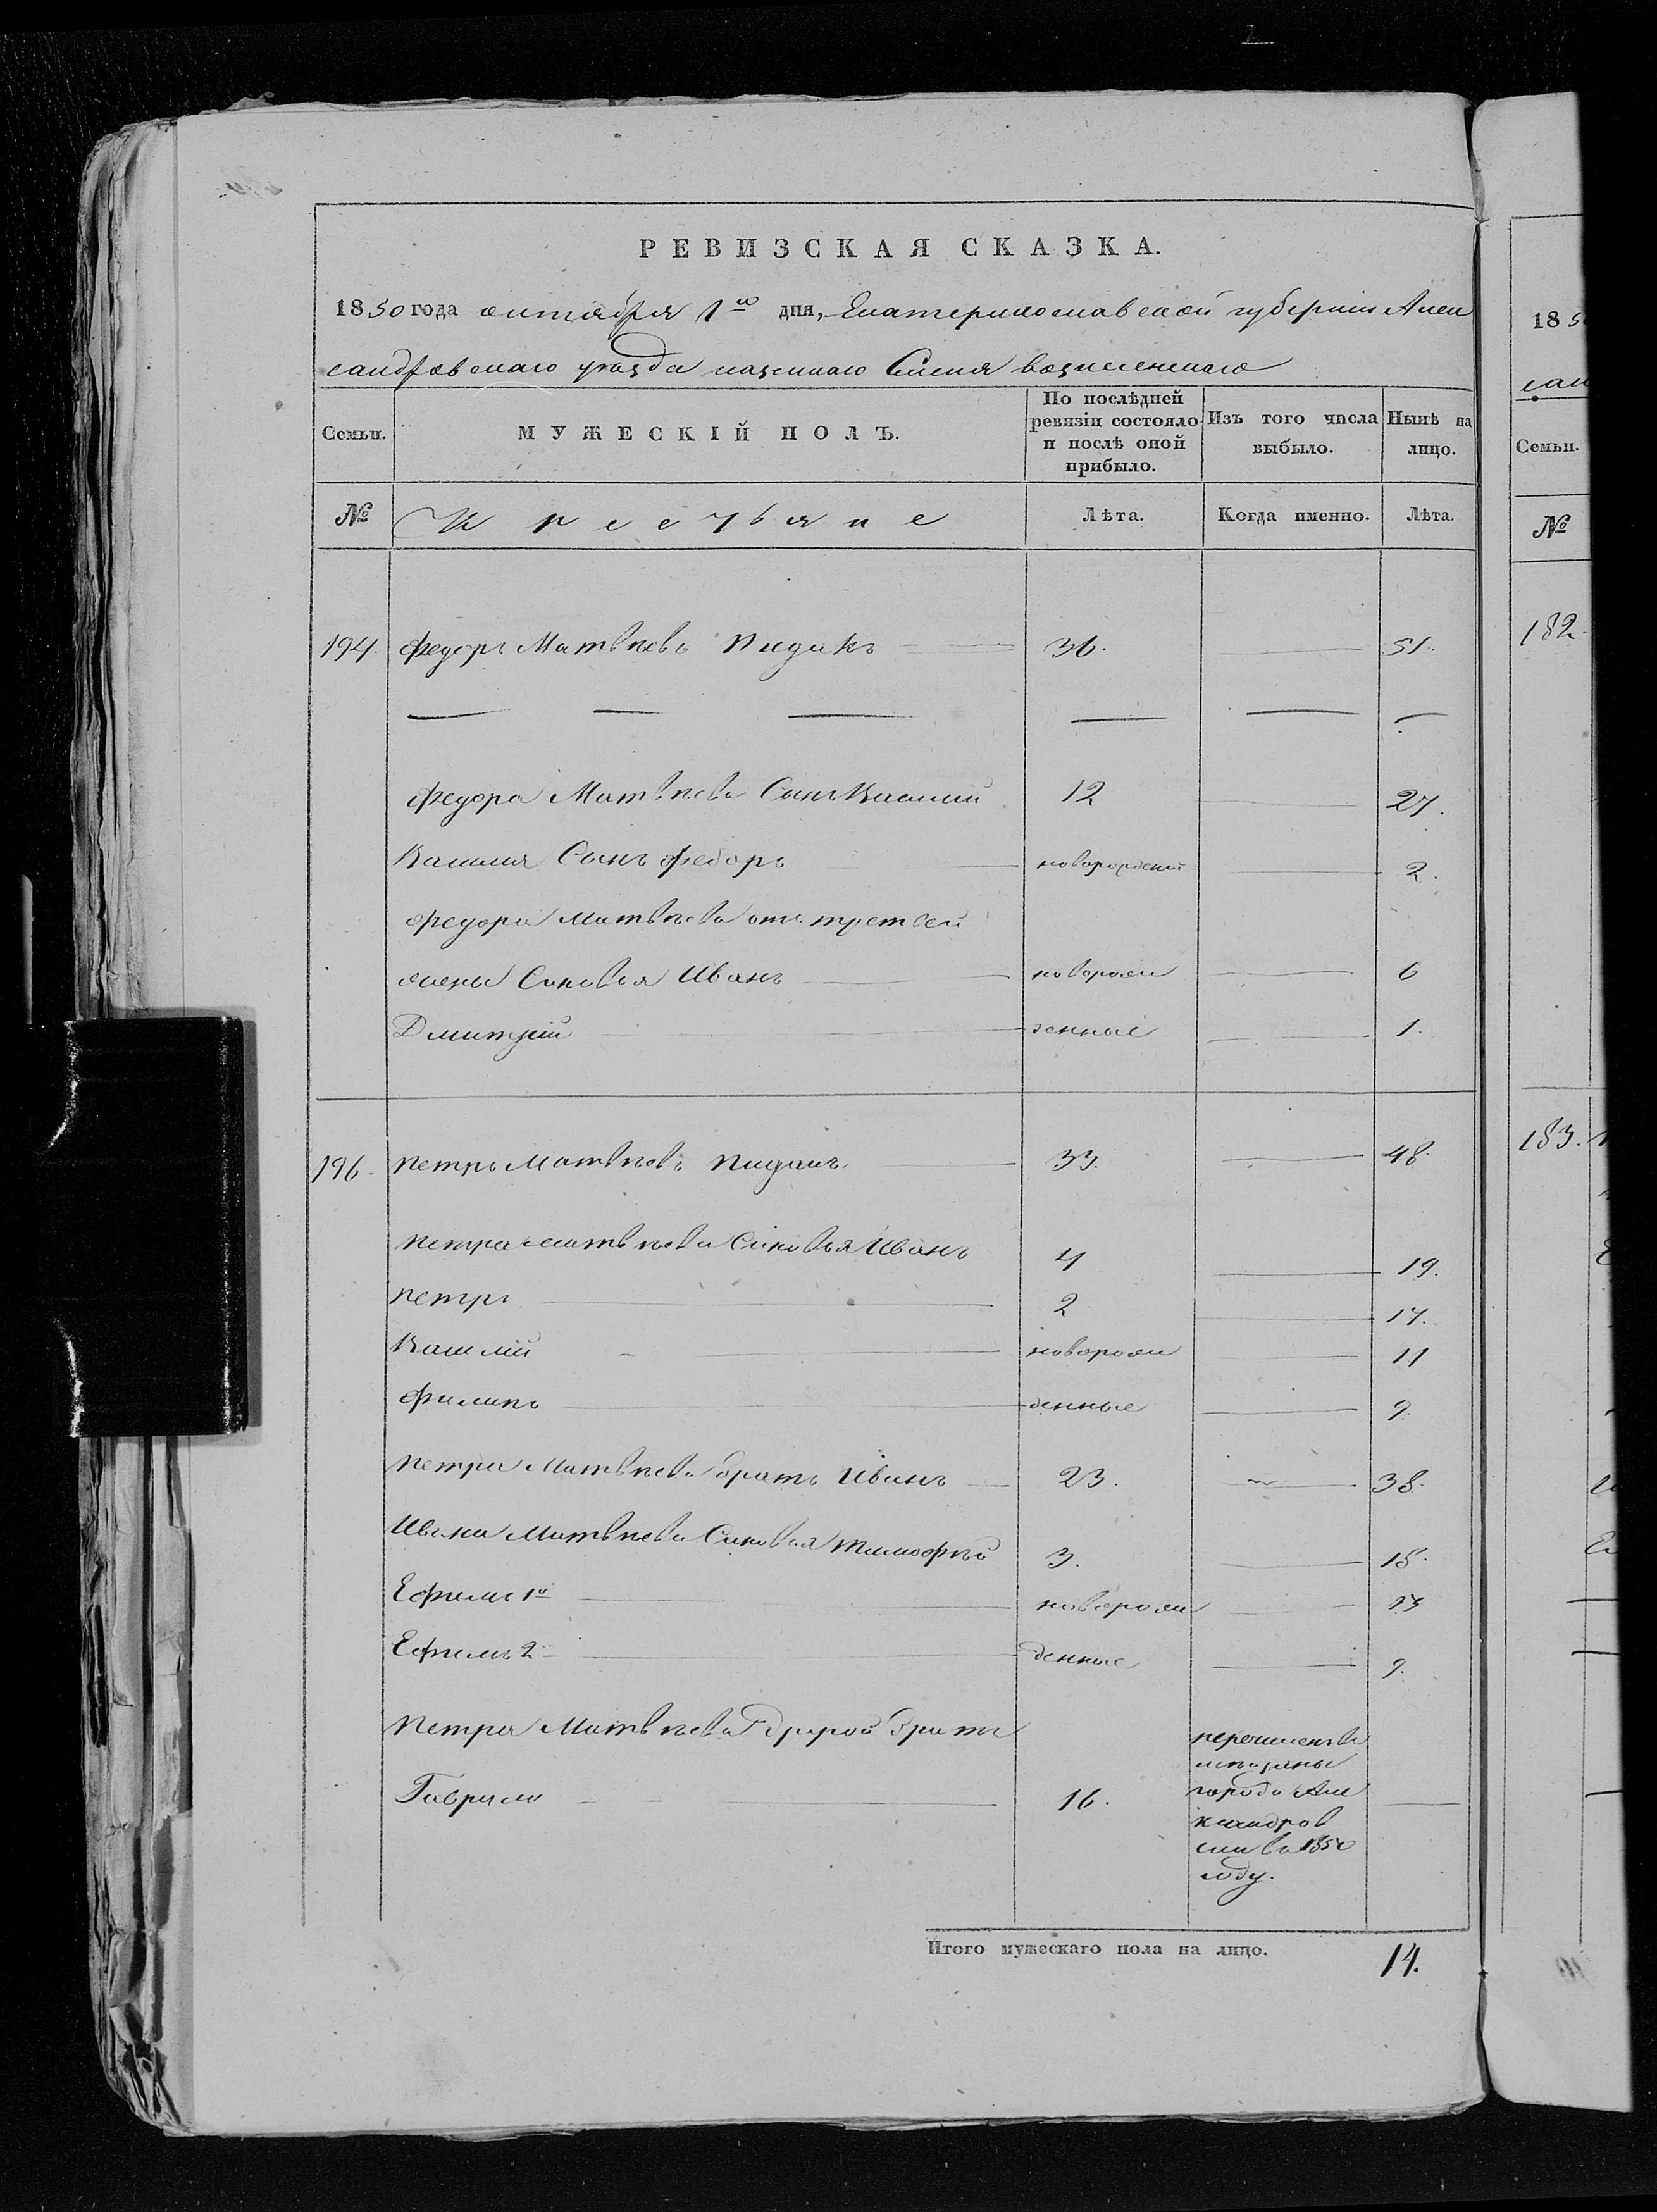 РЕВИЗСКАЯ СКАЗКА.
1850 года октября 1го дня, Екатеринославской губернiи Алек
сандровскаго уѣзда казеннаго Селенiя вознесенскаго
Семьи. МУЖЕСКIЙ ПОЛЪ. По послѣдней ревизiи состояло и послѣ оной прибыло. Изъ того числа выбыло. Нынѣ на лицо.
№ Крестьяне Лѣта. Когда именно. Лѣта.
194. Федоръ Матвѣевъ Пидакъ 36. 51.
Федора Матвѣева Сынъ Василий 12 27.
Василия Сынъ Федоръ новорожденный 2.
Федора Матвѣева отъ третьей
жены Сыновья Иванъ новорож 6
Дмитрий денные 1.
196. Петръ Матвѣевъ Пидакъ. 33. 48.
Петра Матвѣева Сыновья Иванъ 4 19.
Петръ 2 17.
Василий новорож 11
Филипъ денные 9
Петра Матвѣева братъ Иванъ 23. 38.
Ивана Матвѣева Сыновья Тимофѣй 3. 18.
Ефимъ 1й новорож 13
Ефимъ 2 денные 9.
Петра Матвѣева другой братъ
Гаврило 16.
перечисленъ в
мещаны
города Але
ксандров
ска въ 1850
году.
Итого мужескаго пола на лицо. 14.
185
сан
Семьи.
№
182
183.